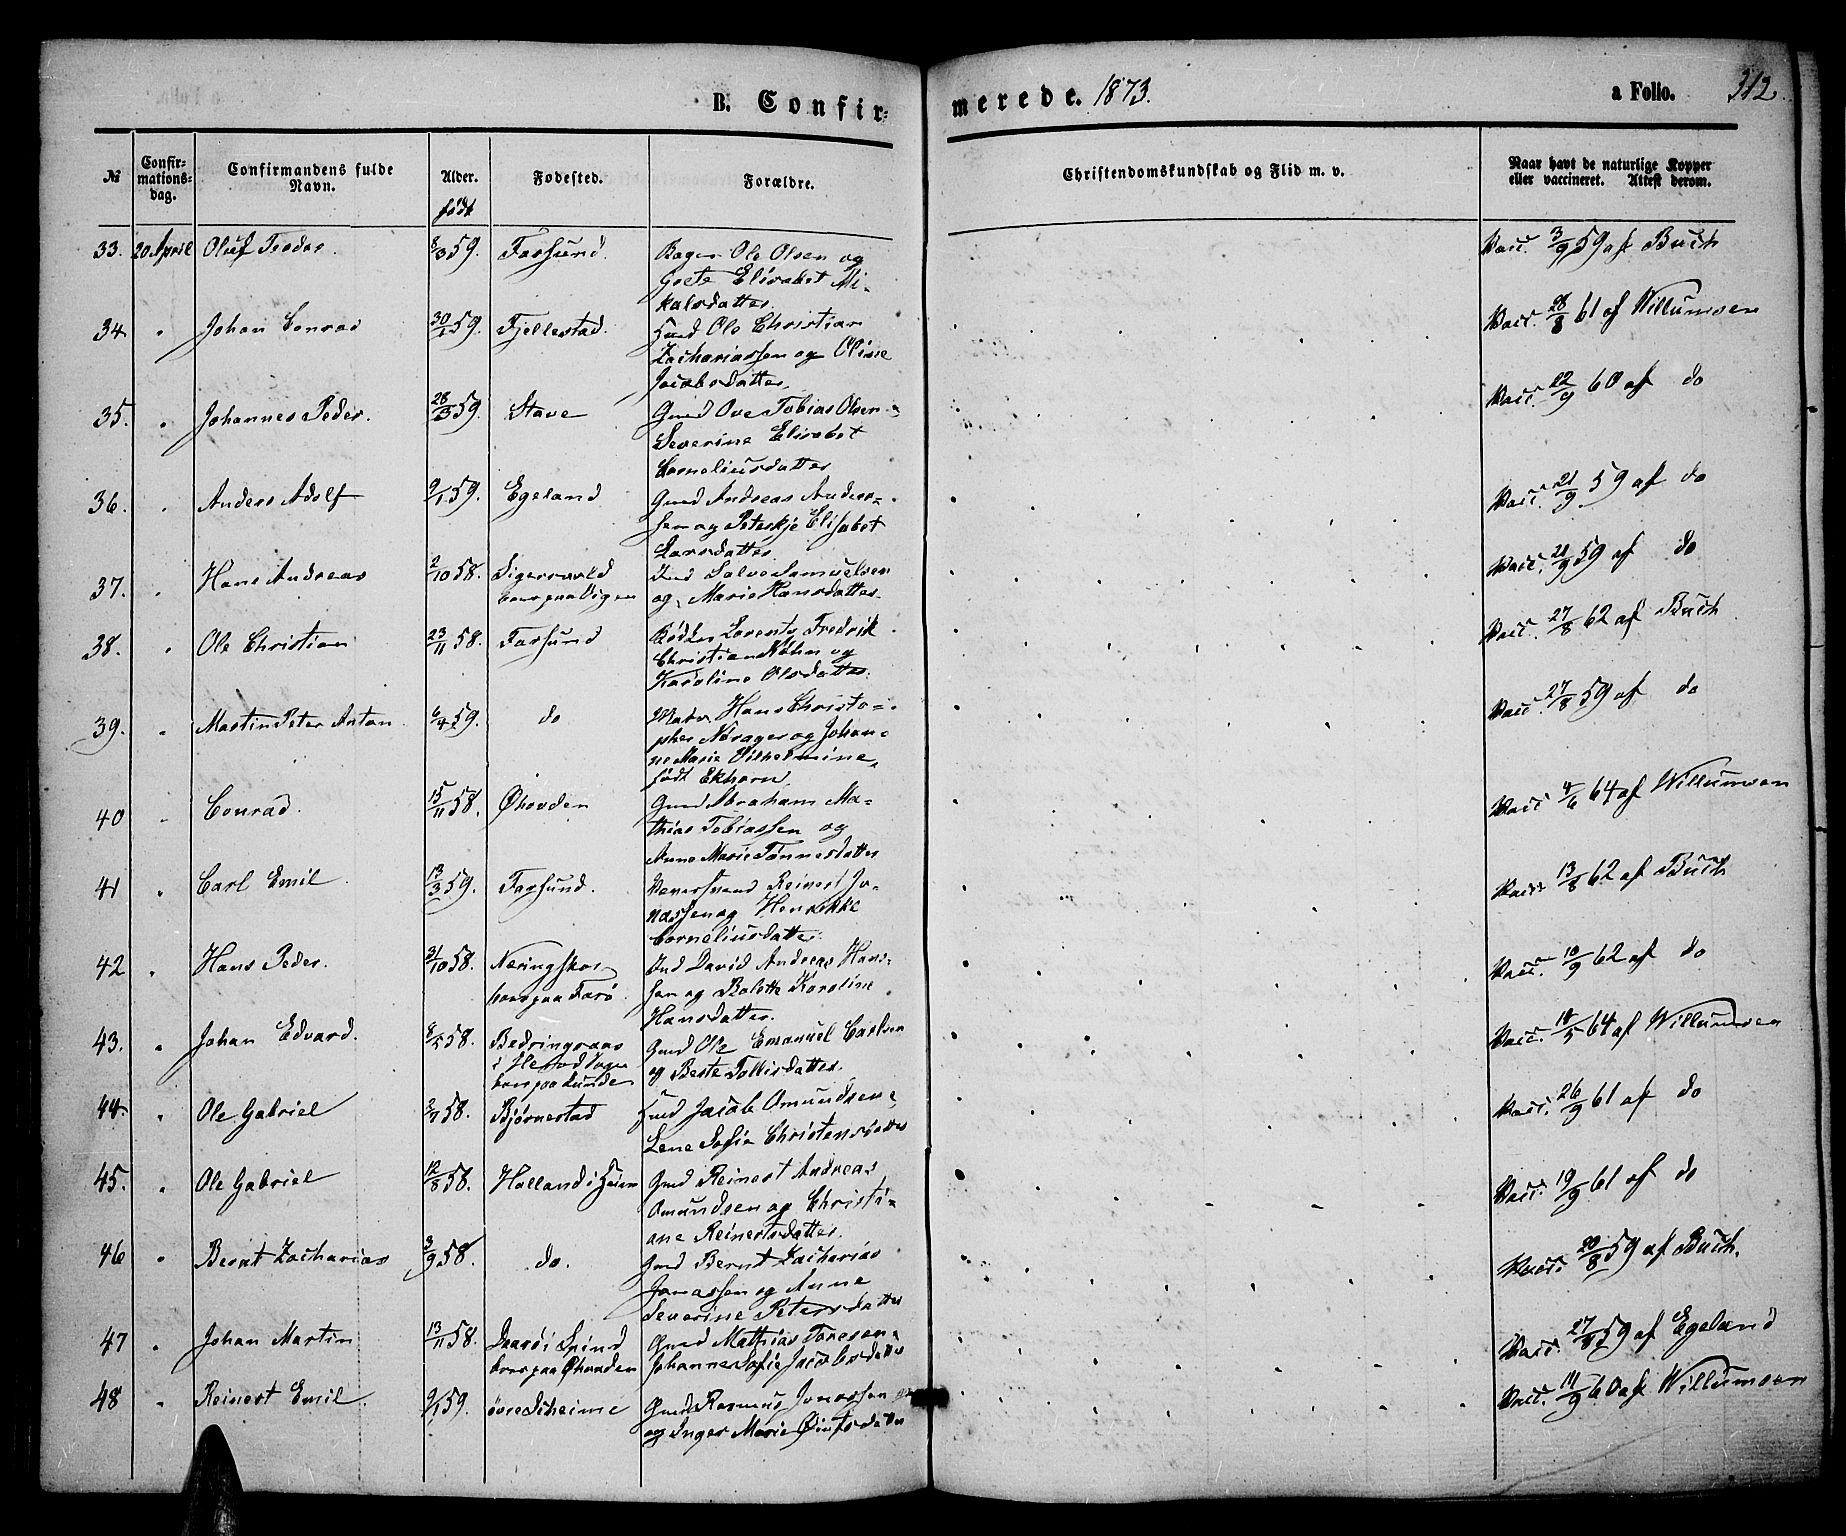 B. Confir=
merede. 1873.
a Folio. 312.
№
Confir-
mations-
dag.
Confirmandens fulde
Navn.
Alder.
født
Fødested.
Forældre.
Christendomskundskab og Flid m. v.
Naar havt de naturlige Kopper
eller vaccineret. Attest derom.
33. 20 April Oluf Teodor. 8/3 59. Farsund. Bager Ole Olsen og
Grete Elisabet Mi-
kalsdatter.
Vacc. 3/9 59 af Buch
34 " Johan Conrad 30/1 59. Fjellestad. Hmd Ole Christian
Zachariassen og Oline
Jacobsdatter.
Vacc. 28/8 61 af Willumsen
35. " Johannes Peder. 28/3 59. Stave Gmd Ove Tobias Olsen
Severine Elisabet
Corneliusdatter
Vacc. 22/9 60 af do
36. " Anders Adolf 9/1 59. Egeland Gmd Andreas Ander-
sen og Peterskje Elisabet
Larsdatter
Vacc. 21/9 59 af do
37. " Hans Andreas 2/10 58. Sigersvold Ind Salve Samuelsen
og Marie Hansdatter.
Vacc. 21/9 59 af do
38. " Ole Christian 23/11 58. Farsund Bødker Lorents Fredrik
Christian Køhn og
Karoline Olsdatter.
Vacc. 27/8 62 af Buch
39. " Martin Peter Anton 6/4 59. do Hans Christo-
pher og Johan-
ne Marie Vilhelmine,
født Ekhorn
Vacc. 27/8 59 af do
40 " Conrad. 15/11 58. Øhovden Gmd Abraham Ma-
thias Tobiassen og
Anne Marie Tønnesdatter
Vacc. 4/6 64 af Willumsen
41 " Carl Emil 13/3 59. Farsund. Reinert Jo-
nassen og Henrikke
Corneliusdatter.
Vacc. 13/8 62 af Buch
42 " Hans Peder. 31/10 58. Ind David Andreas Han-
sen og Bolette Karoline
Hansdatter.
Vacc. 10/9 62 af do
43. " Johan Edvard. 8/5 58. Gmd Ole Emanuel Carlsen
og Berte Tollisdatter.
Vacc. 18/5 64 af Willumsen
44. " Ole Gabriel 2/7 58. Bjørnestad Hmd Jacob Omundsen,
Lene Sofie Christensdatter
Vacc. 26/9 61 af do
45. " Ole Gabriel 12/8 58. Holland i Gmd Reinert Andreas
Omundsen og Christi-
ane Reinertsdatter.
Vacc. 19/9 61 af do
46 " Bernt Zacharias 3/9 58. do. Gmd Bernt Zacharias
Jonassen og Anne
Severine Petersdatter
Vacc. 20/8 59 af Buch.
47 " Johan Martin 13/11 58. i Spind Gmd Mathias Toresen
boer paa Øhovden Johanne Sofie Jacobsdatter
Vacc. 27/8 59 af Egeland
48 " Reinert Emil. 9/1 59. Gmd Rasmus Jonassen
og Inger Marie
Vacc. 11/9 60 af Willumsen